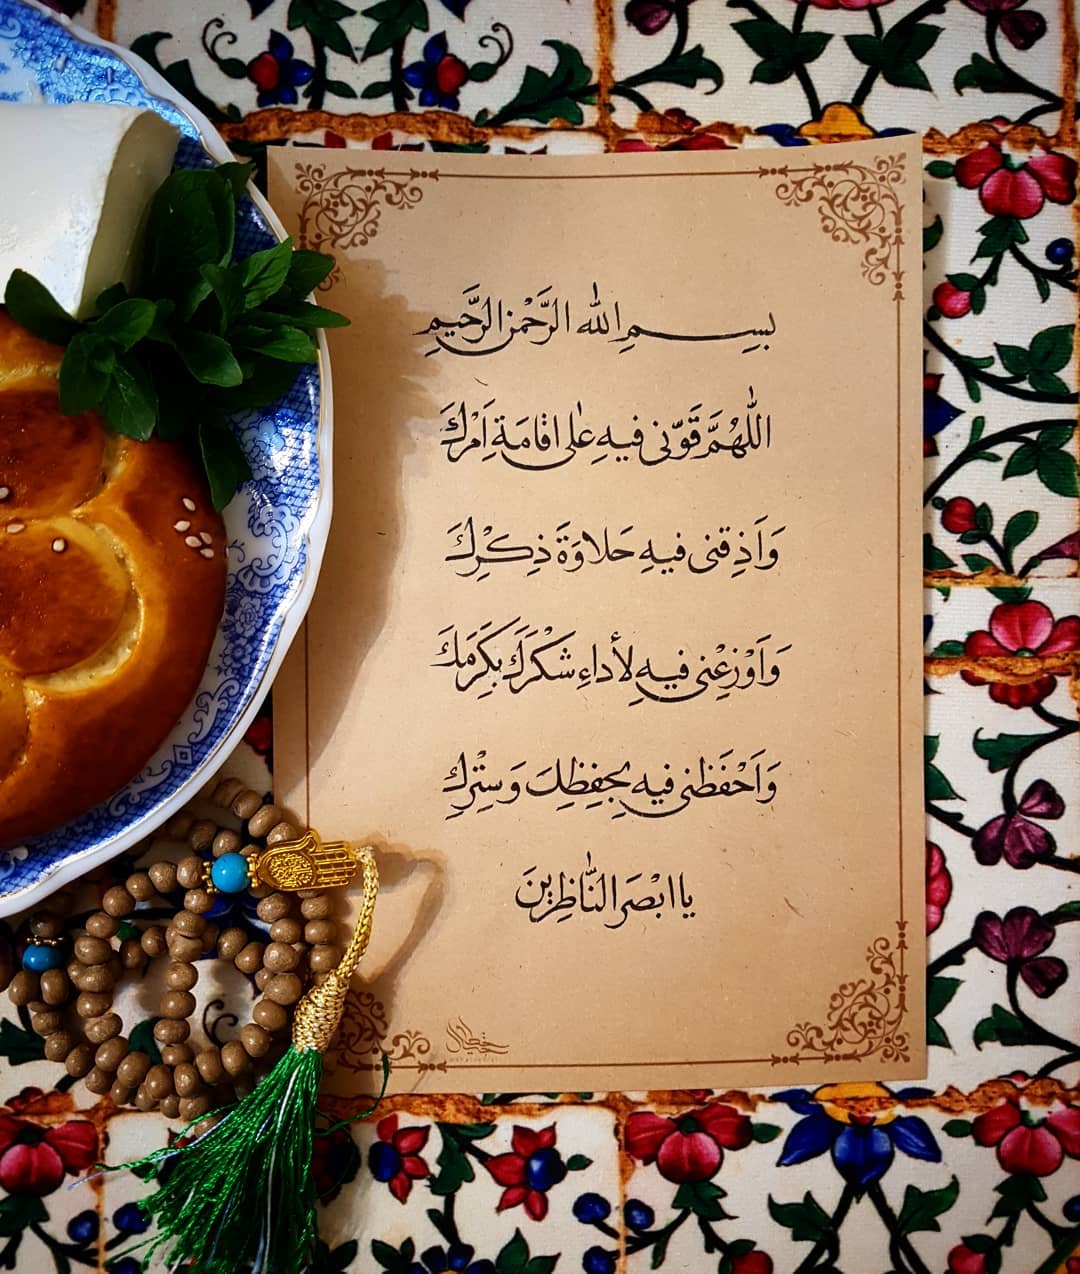 بِسِمِ اللّٰه الرَّحْمٰنِ الرَّحيمِ
اَللّٰهُمَّ قَوّنی فیهِ عَلٰی اقٰامَةِ اَمْرِكَ
وَاَذِقنی فیهِ حَلاوَةَ ذِكْرِكَ
وَاَوْزِعْنی فیهِ لأداءِ شَكْرَكَ بِكَرَمَكَ
وَاَحْفَظنی فیهِ بِحِفِظِكَ وَسِتْرِكِ
یا ابْصَرَ النّٰاظِرینَ